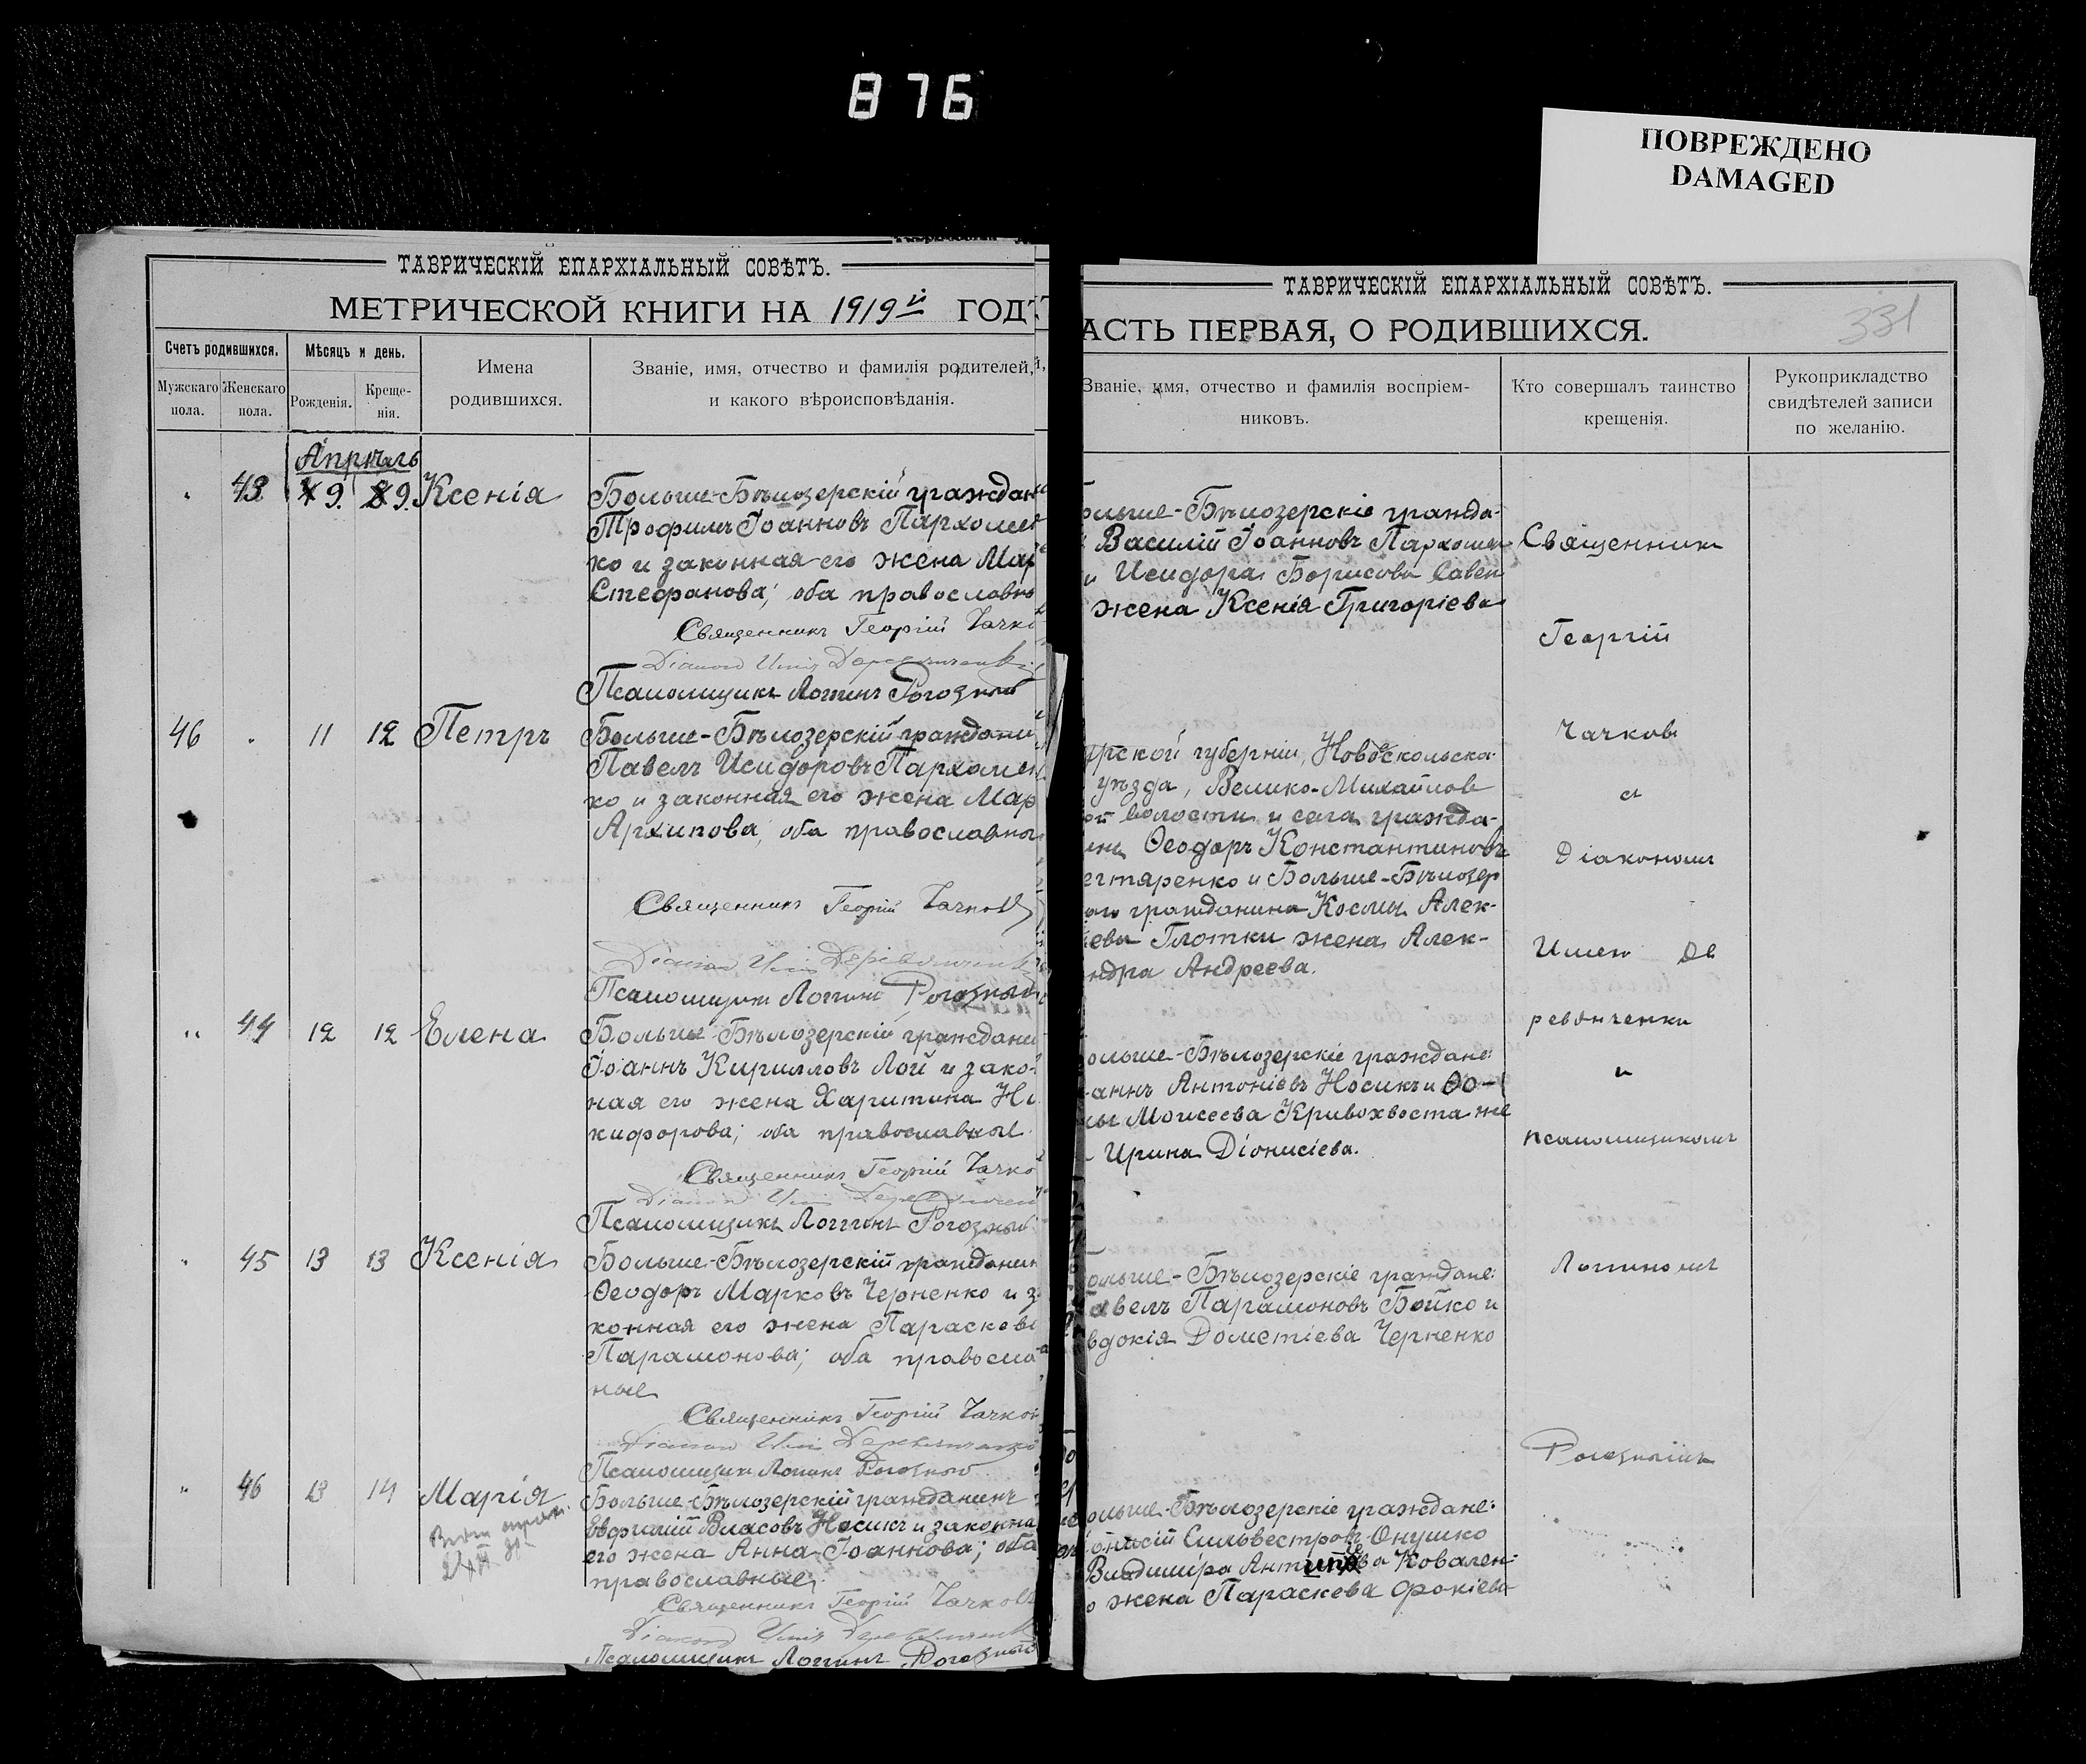 876
ПОВРЕЖДЕНО
DAMAGED
ТАВРИЧЕСКІЙ ЕПАРХІАЛЬНЫЙ СОВѢТЪ.
МЕТРИЧЕСКОЙ КНИГИ НА 1919й ГОДЪ
Счетъ родившихся.
Мужскаго пола.
Женскаго пола.
Мѣсяцъ и день.
Рожденія.
Креще-
нія.
Имена
родившихся.
Званіе, имя, отчество и фамилія родителей,
и какого вѣроисповѣданія.
Апрѣль
43 9. 9. Ксенія
Больше-Бѣлозерскій граждан
Трофимъ Іоанновъ Пархомен
ко и законная его жена Мар
Стефанова; оба православны
Священникъ Георгій Чачко
Діаконъ
Псаломщикъ Логгинъ Рогозный
46 11 12 Петръ
Больше-Бѣлозерскій граждани
Павелъ Исидоровъ Пархомен
ко и законная его жена Мар
Архипова; оба православны
Священникъ Георгій Чачковъ
Діаконъ
Псаломщикъ Логгинъ Рогозный
44 12 12 Елена
Больше-Бѣлозерскій граждани
Іоаннъ Кирилловъ Лой и зако-
ная его жена Харитина Ни
кифорова; оба православные
Священникъ Георгій Чачко
Діаконъ
Псаломщикъ Логгинъ Рогозный
45 13 13 Ксенія
Больше-Бѣлозерскій гражданин
Ѳеодоръ Марковъ Черненко и з
конная его жена Параскеві
Парамонова; оба правосла
ные
Священникъ Георгій Чачков
Діаконъ
Псаломщикъ Логгинъ Рогозный
46 13 14 Марія
Больше-Бѣлозерскій гражданинъ
Евфимій Власовъ Носикъ и законна
его жена Анна Іоаннова; оба
православные.
Священникъ Георгій Чачковъ
Діаконъ
Псаломщикъ Логгинъ Рогозный
ТАВРИЧЕСКІЙ ЕПАРХІАЛЬНЫЙ СОВѢТЪ.
АСТЬ ПЕРВАЯ, О РОДИВШИХСЯ.
331
Званіе, имя, отчество и фамилія воспріем-
никовъ.
Кто совершалъ таинство
крещенія.
Рукоприкладство
свидѣтелей записи
по желанію.
ольше-Бѣлозерскіе гражда-
Василій Іоанновъ Пархомен
и Исидора Борисова Савен
жена Ксенія Григоріева
рской губерніи, Новооскольска
уѣзда, Велико-Михайлов
ой волости и села гражда-
Ѳеодоръ Константиновъ
егтяренко и Больше-Бѣлозер
аго гражданина Космы Алек-
ева Глотки жена Алек-
ндра Андреева.
ольше-Бѣлозерскіе граждане:
аннъ Антоніевъ Носикъ и Ѳо-
мы Моисеева Кривохвоста же
Ирина Діонисіева.
ольше-Бѣлозерскіе граждане:
авелъ Парамоновъ Бойко и
вдокія Дометіева Черненко
ольше-Бѣлозерскіе граждане:
Сильвестровъ Онушко
Владиміра Ковален-
о жена Параскева Фокіева
Священникъ
Георгій
Чачковъ
съ
Діакономъ
Де
ревянченки
и
псаломщикомъ
Логиномъ
Рогознымъ